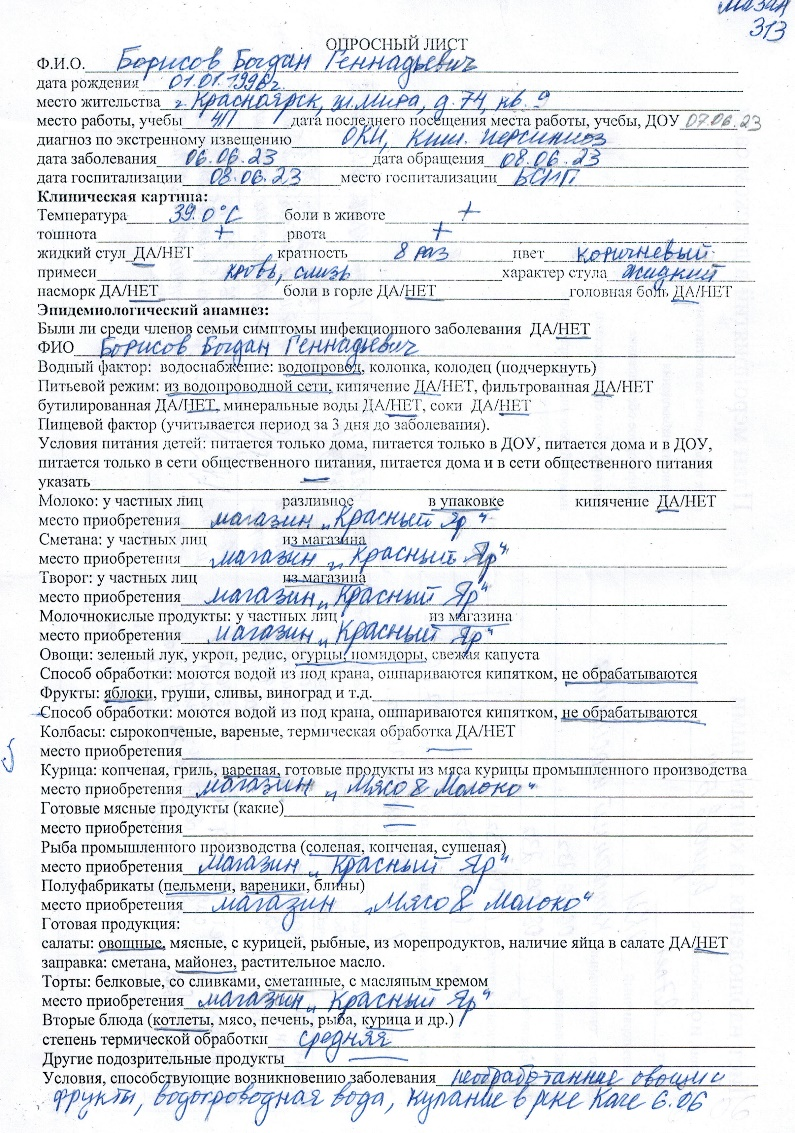 Мазан
313
ОПРОСНЫЙ ЛИСТ
Ф.И.О. Борисов Богдан Геннадьевич
дата рождения 01.01.1996г
место жительства г. Красноярск, ул. Мира, д. 74, кв. 9
место работы, учебы ЧП дата последнего посещения места работы, учебы, ДОУ 07.06.23
диагноз по экстренному извещению ОКИ, Киш. иерсиниоз
дата заболевания 06.06.23 дата обращения 08.06.23
дата госпитализации 08.06.23 место госпитализации БСМП
Клиническая картина:
Температура 39.0°С боли в животе +
тошнота + рвота +
жидкий стул ДА/НЕТ кратность 8 раз цвет коричневый
примеси кровь, слизь характер стула жидкий
насморк ДА/НЕТ боли в горле ДА/НЕТ головная боль ДА/НЕТ
Эпидемиологический анамнез:
Были ли среди членов семьи симптомы инфекционного заболевания ДА/НЕТ
ФИО Борисов Богдан Геннадьевич
Водный фактор: водоснабжение: водопровод, колонка, колодец (подчеркнуть)
Питьевой режим: из водопроводной сети, кипячение ДА/НЕТ, фильтрованная ДА/НЕТ
бутилированная ДА/НЕТ, минеральные воды ДА/НЕТ, соки ДА/НЕТ
Пищевой фактор (учитывается период за 3 дня до заболевания).
Условия питания детей: питается только дома, питается только в ДОУ, питается дома и в ДОУ,
питается только в сети общественного питания, питается дома и в сети общественного питания
указать —
Молоко: у частных лиц разливное в упаковке кипячение ДА/НЕТ
место приобретения магазин „Красный Яр"
Сметана: у частных лиц из магазина
место приобретения магазин „Красный Яр"
Творог: у частных лиц из магазина
место приобретения магазин „Красный Яр"
Молочнокислые продукты: у частных лиц из магазина
место приобретения магазин „Красный Яр"
Овощи: зеленый лук, укроп, редис, огурцы, помидоры, свежая капуста
Способ обработки: моются водой из под крана, ошпариваются кипятком, не обрабатываются
Фрукты: яблоки, груши, сливы, виноград и т.д.
Способ обработки: моются водой из под крана, ошпариваются кипятком, не обрабатываются
Колбасы: сырокопченые, вареные, термическая обработка ДА/НЕТ
место приобретения —
Курица: копченая, гриль, вареная, готовые продукты из мяса курицы промышленного производства
место приобретения магазин „Мясо & Молоко"
Готовые мясные продукты (какие) —
место приобретения —
Рыба промышленного производства (соленая, копченая, сушеная)
место приобретения магазин „Красный Яр"
Полуфабрикаты (пельмени, вареники, блины)
место приобретения магазин „Мясо & Молоко"
Готовая продукция:
салаты: овощные, мясные, с курицей, рыбные, из морепродуктов, наличие яйца в салате ДА/НЕТ
заправка: сметана, майонез, растительное масло.
Торты: белковые, со сливками, сметанные, с масляным кремом
место приобретения магазин „Красный Яр"
Вторые блюда (котлеты, мясо, печень, рыба, курица и др.)
степень термической обработки средняя
Другие подозрительные продукты —
Условия, способствующие возникновению заболевания необработанные овощи и
фрукты, водопроводная вода, купание в реке Каче 6.06